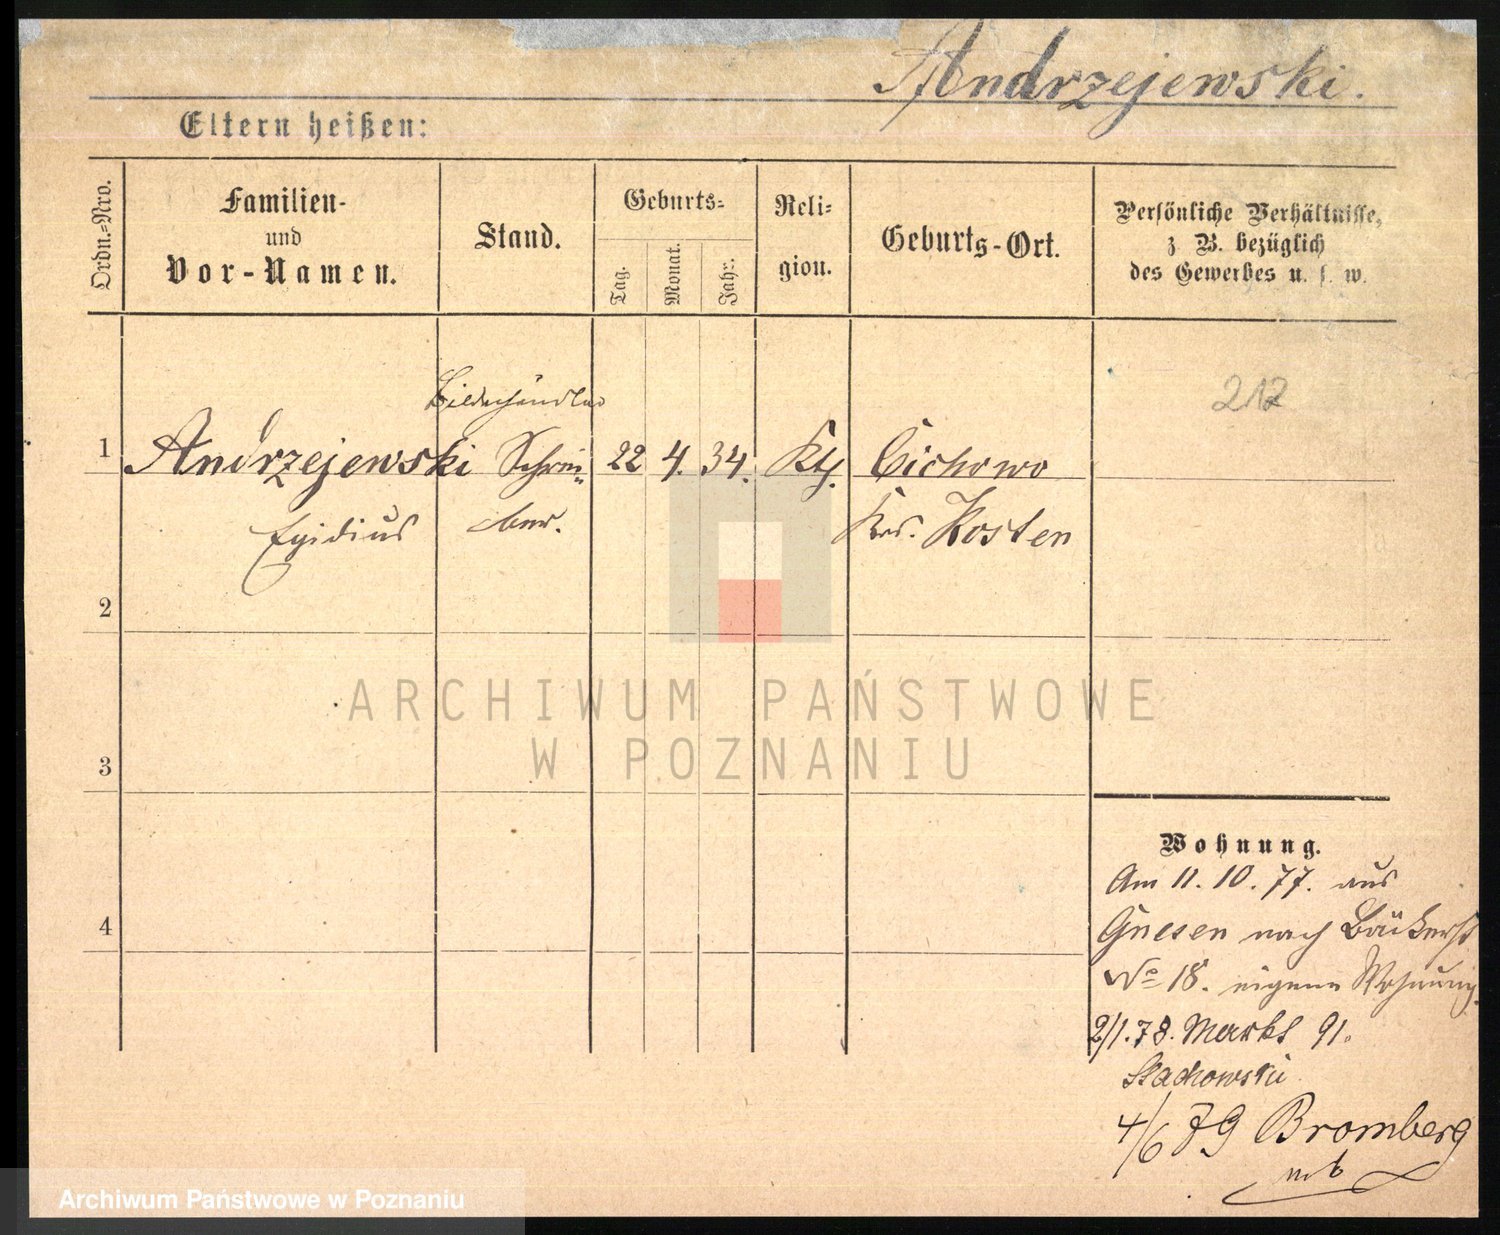 Andrzejewski.
Eltern heißen:
Ordn.-Nro.
Familien-
und
Vor-Namen.
Stand.
Geburts-
Tag.
Monat.
Jahr.
Reli-
gion.
Geburts-Ort.
Persönliche Verhältnisse,
z. B. bezüglich
des Gewerbes u. s. w.
212
Bilderhändler
1 Andrzejewski Schrei- 22 4. 34. Kth. Cichowo
Egidius ber. Krs. Kosten
2
3
4
Wohnung.
Am 11. 10. 77. aus
Gnesen nach Bäckerst
No 18. eigene Wohnung.
2/1.78. Markt 91.
Stachowski
4/6 79 Bromberg
ARCHIWUM PAŃSTWOWE
W POZNANIU
Archiwum Państwowe w Poznaniu